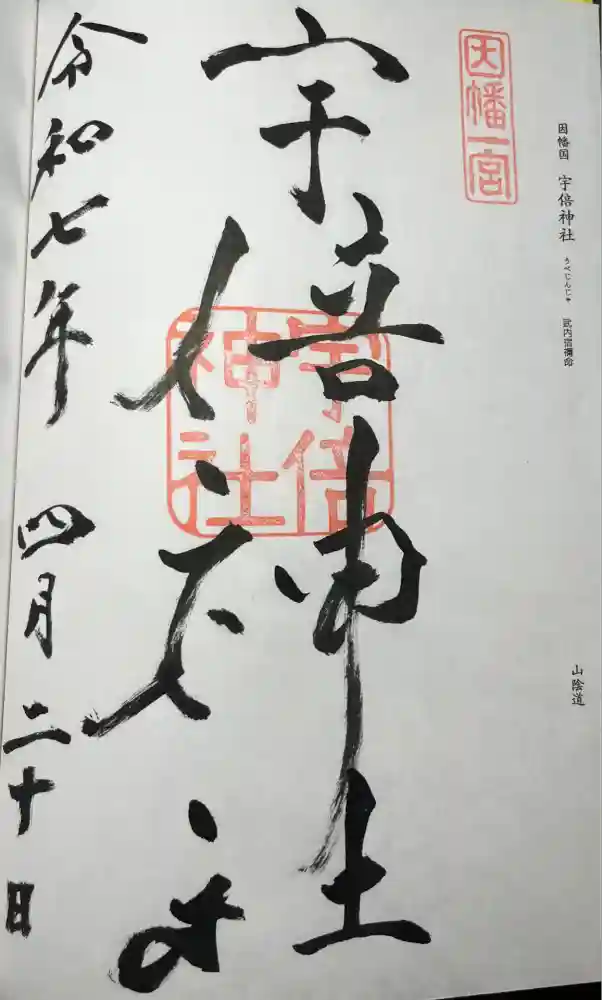 因幡国 宇倍神社 うべじんじゃ 武内宿禰命
山陰道
因幡一宮
宇倍神社
宇倍神社
令和七年 四月二十日